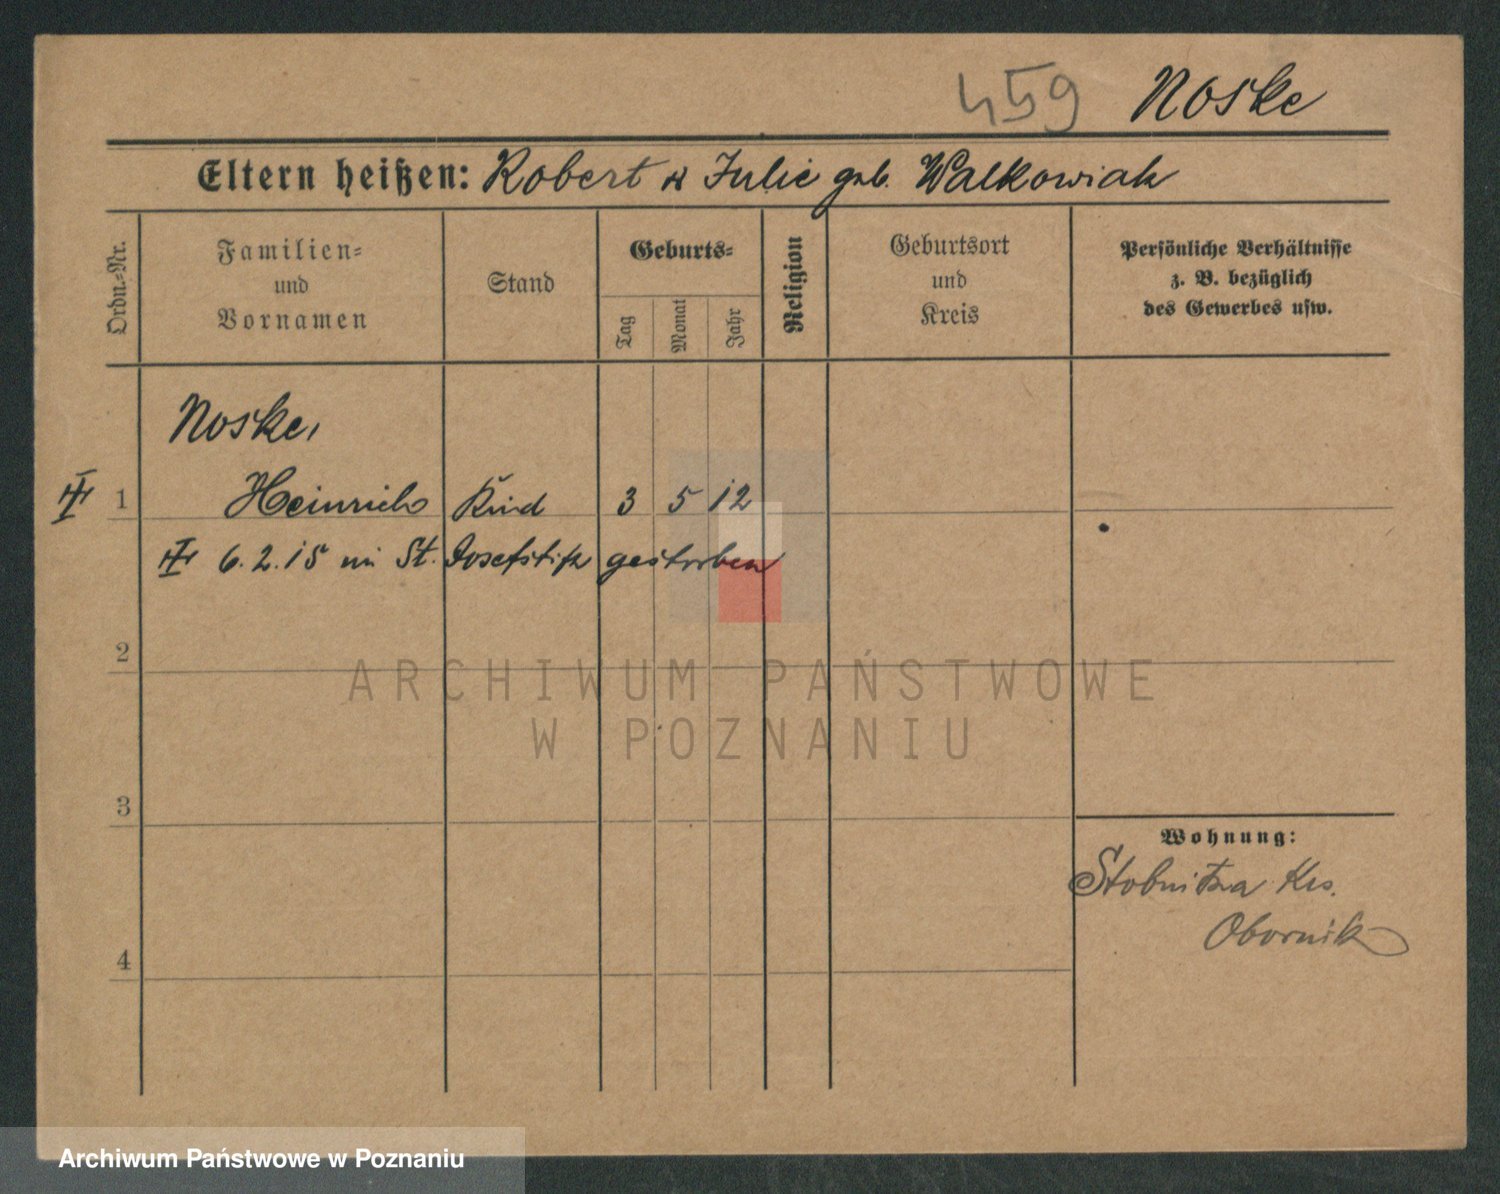 459 Noske
Eltern heißen: Robert u Julie geb. Walkowiak
Ordn.-Nr.
Familien-
und
Vornamen
Stand
Geburts-
Tag
Monat
Jahr
Religion
Geburtsort
und
Kreis
Persönliche Verhältnisse
z. B. bezüglich
des Gewerbes usw.
Noske,
1 Heinrich Kind 3 5 12
6.2.15 im St. Josefstift gestorben
2
ARCHIWUM PAŃSTWOWE
W POZNANIU
3
Wohnung:
Stobnitza Krs.
Obornik
4
Archiwum Państwowe w Poznaniu